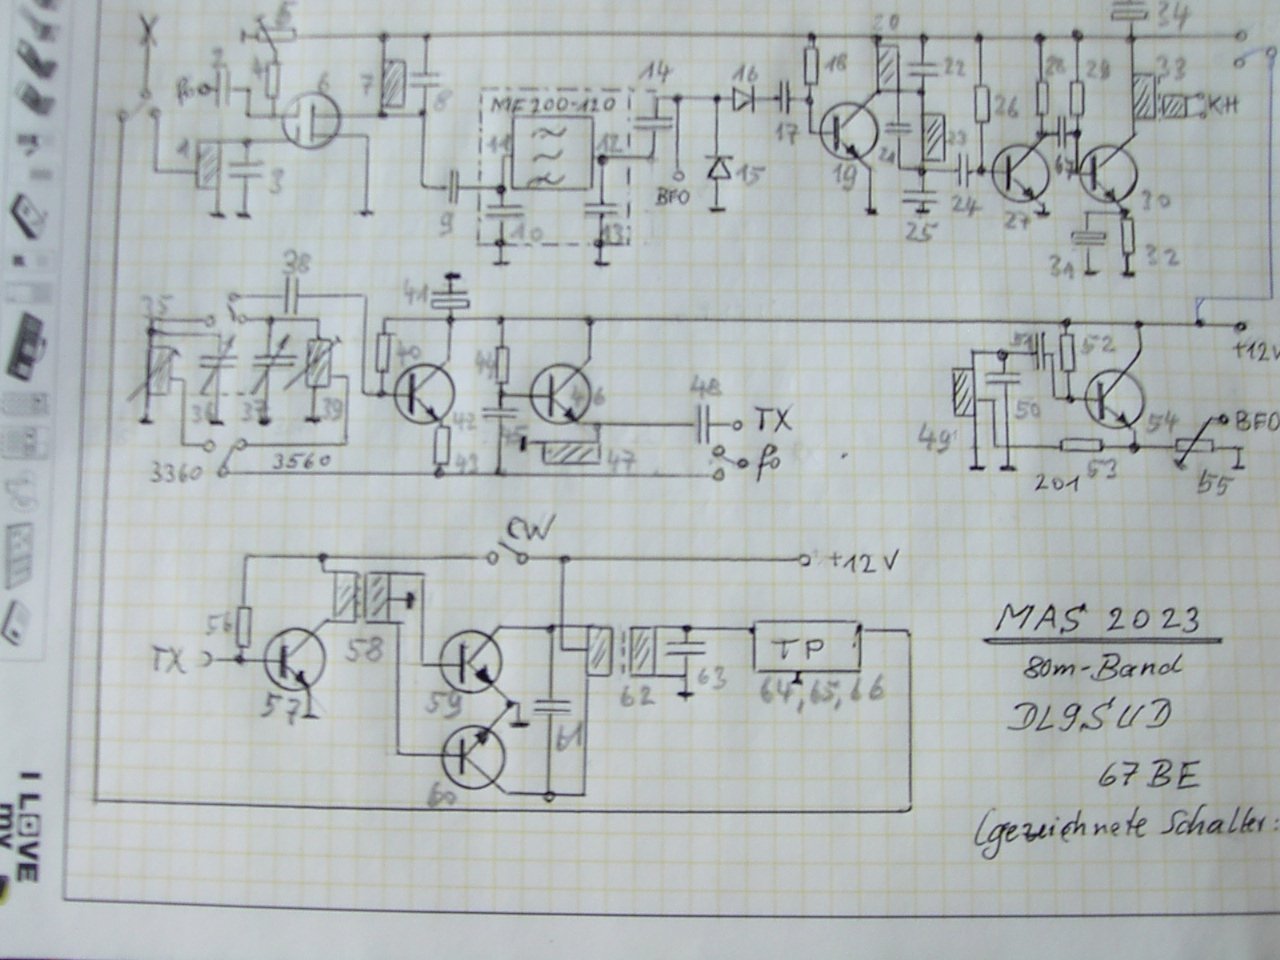 X
5
34
2
4
6
7
8
14
16
20
18
22
28
29
33
KH
fo
MF200-120
26
1
3
11
12
17
21
23
15
BFO
19
24
67
30
9
10
13
25
27
31
32
38
35
41
40
44
51
52
+12V
36
37
39
42
45
46
48
TX
fo
50
54
BFO
49
3360
3560
43
47
201
53
55
CW
+12V
56
TX
57
58
59
60
61
62
63
TP
64, 65, 66
MAS 2023
80m-Band
DL9SUD
67 BE
(gezeichnete Schalter:
I LOVE
my